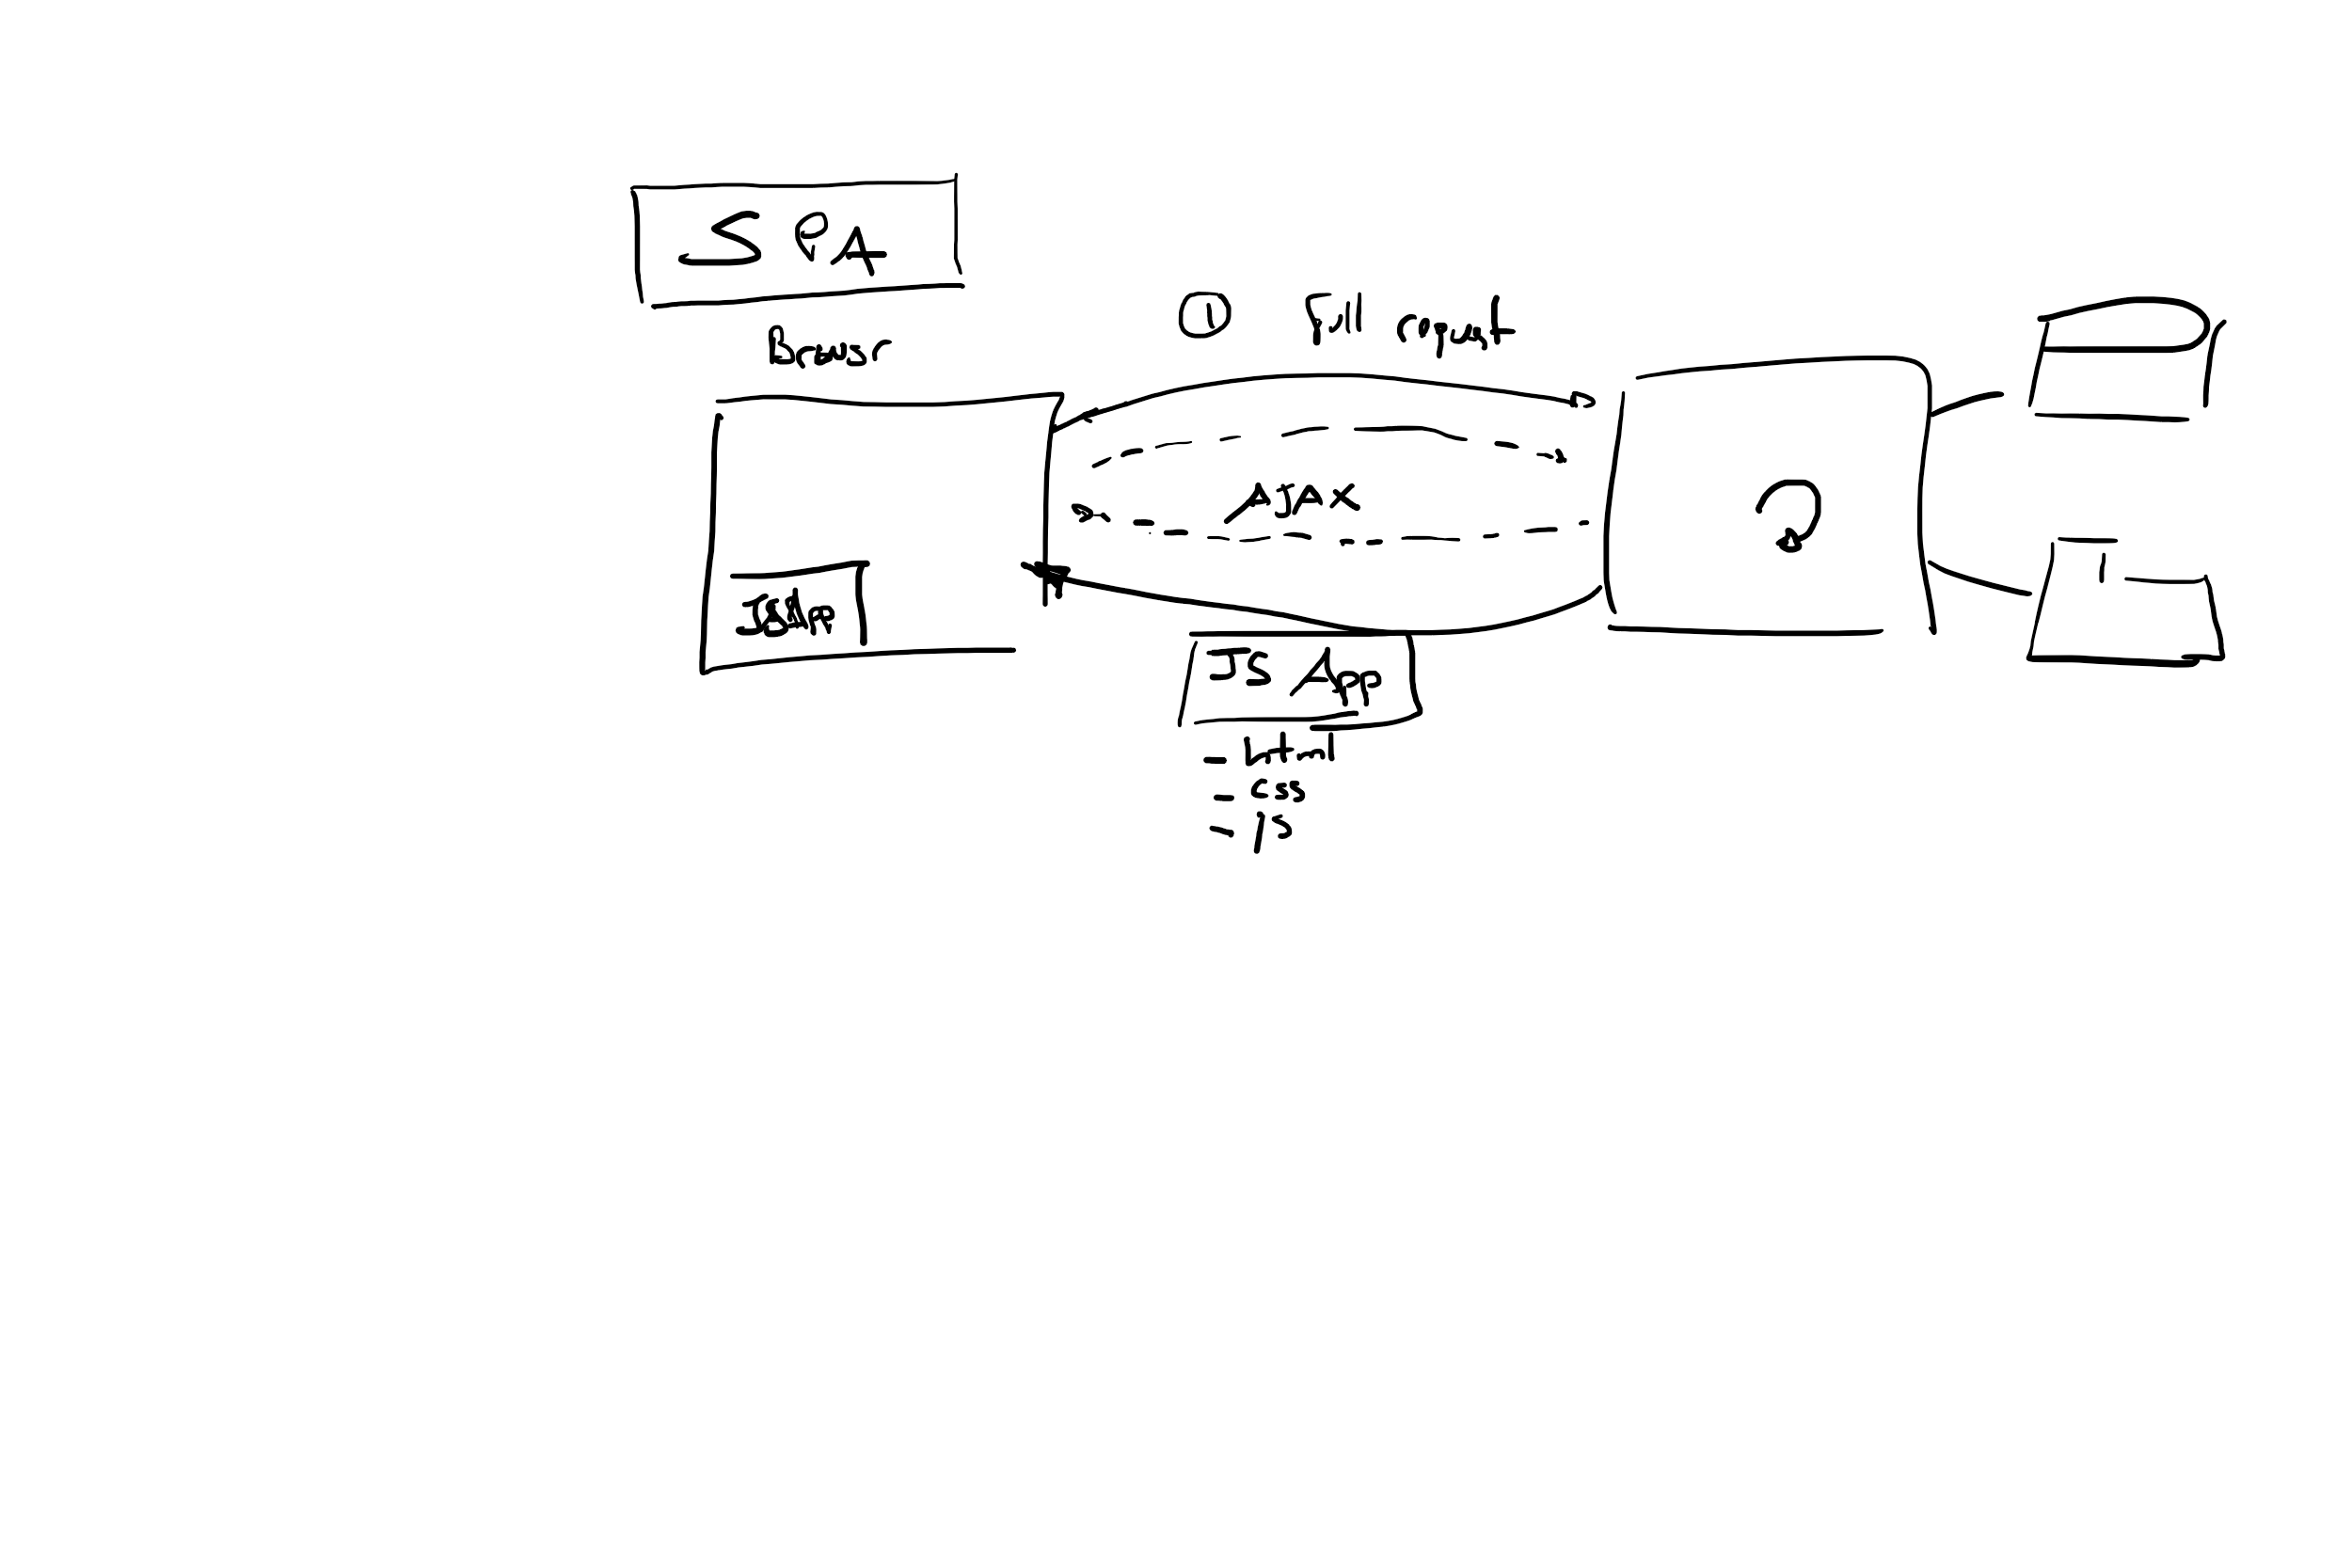 SPA
Browser
① full request
AJAX
?
JS App
JS App
- html
- css
- js